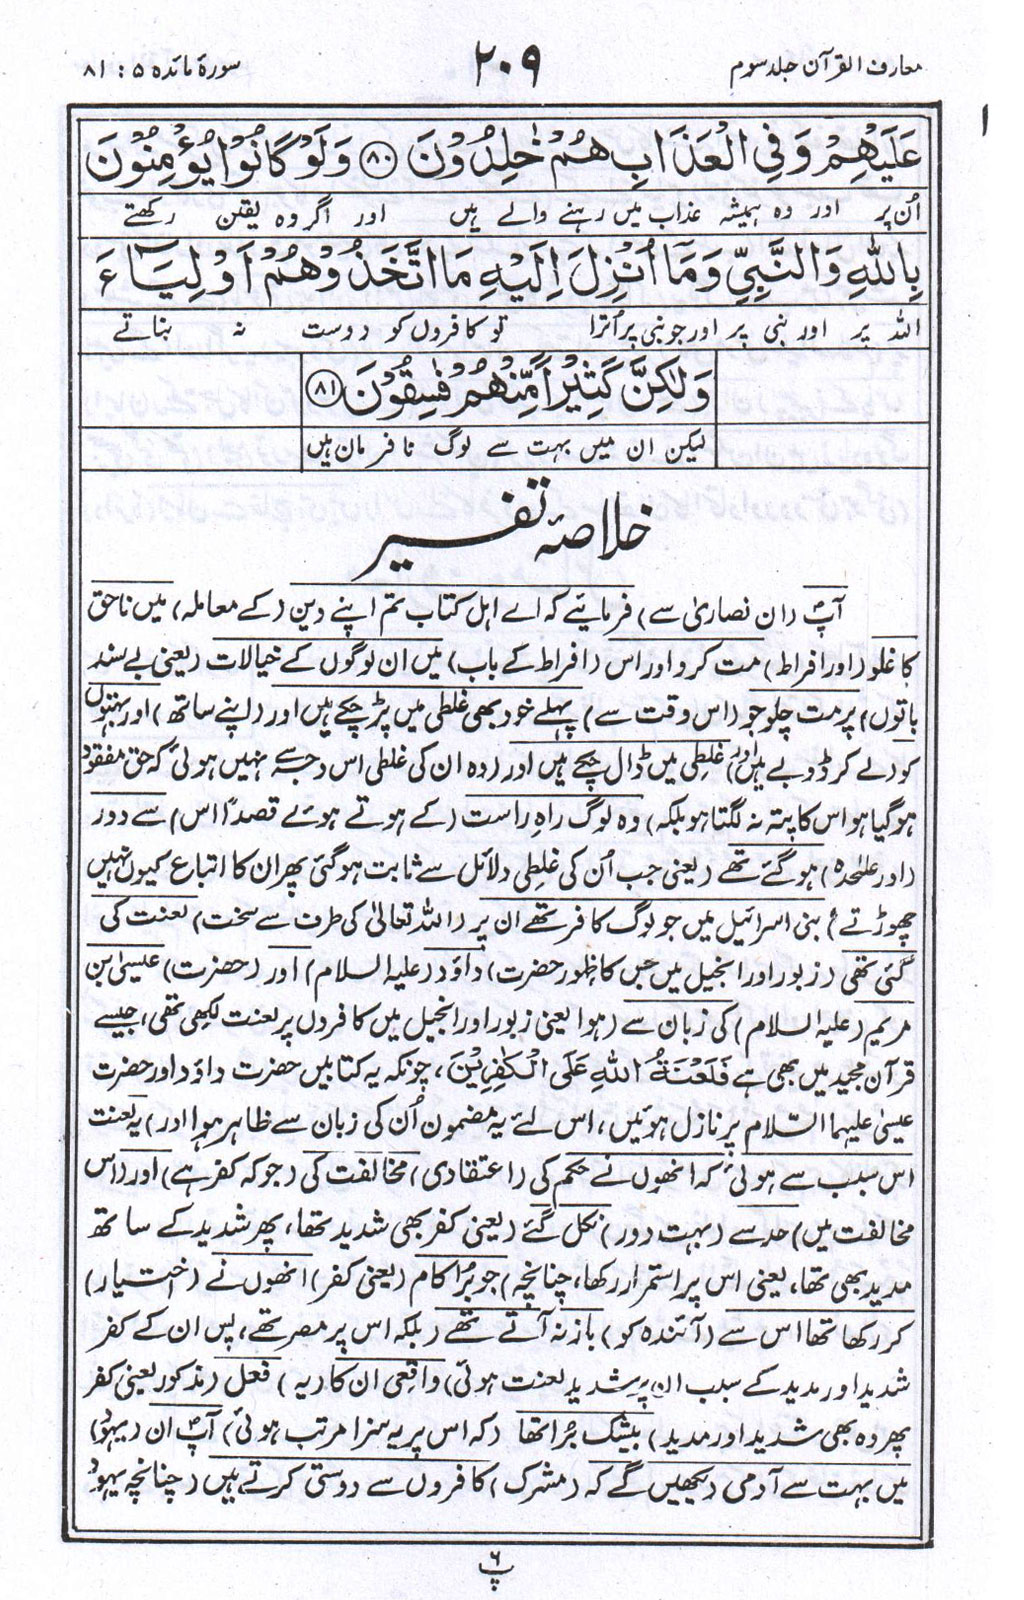 معارف القرآن جلد سوم
۲۰۹
سورۂ مائدہ ۵ : ۸۱
عَلَيْهِمْ وَفِي الْعَذَابِ هُمْ خٰلِدُوْنَ ﴿۸۰﴾ وَلَوْ كَانُوْا يُؤْمِنُوْنَ
اُن پر اور وہ ہمیشہ عذاب میں رہنے والے ہیں اور اگر وہ یقین رکھتے
بِاللّٰهِ وَالنَّبِيِّ وَمَآ اُنْزِلَ اِلَيْهِ مَا اتَّخَذُوْهُمْ اَوْلِيَآءَ
اللہ پر اور نبی پر اور جو نبی پر اُترا تو کافروں کو دوست نہ بناتے
وَلٰكِنَّ كَثِيْرًا مِّنْهُمْ فٰسِقُوْنَ ﴿۸۱﴾
لیکن ان میں بہت سے لوگ نافرمان ہیں
خلاصۂ تفسیر
آپؐ (ان نصاریٰ سے) فرمائیے کہ اے اہل کتاب تم اپنے دین (کے معاملہ) میں ناحق
کا غلو (اور افراط) مت کرو اور اس (افراط کے باب) میں ان لوگوں کے خیالات (یعنی بے سند
باتوں) پر مت چلو جو (اس وقت سے) پہلے خود بھی غلطی میں پڑ چکے ہیں اور (اپنے ساتھ) اور بہتوں
کو (لے کر ڈوبے ہیں اور) غلطی میں ڈال چکے ہیں اور (وہ ان کی غلطی اس وجہ سے نہیں ہوئی کہ حق مفقود
ہو گیا ہو اس کا پتہ نہ لگتا ہو بلکہ) وہ لوگ راہِ راست (کے ہوتے ہوئے قصداً اس) سے دور
(اور علیٰحدہ) ہو گئے تھے (یعنی جب اُن کی غلطی دلائل سے ثابت ہو گئی پھر ان کا اتباع کیوں نہیں
چھوڑتے) بنی اسرائیل میں جو لوگ کافر تھے ان پر (اللہ تعالیٰ کی طرف سے سخت) لعنت کی
گئی تھی (زبور اور انجیل میں جس کا ظہور حضرت) داؤد (علیہ السلام) اور (حضرت) عیسیٰ بن
مریم (علیہ السلام) کی زبان سے (ہوا یعنی زبور اور انجیل میں کافروں پر لعنت لکھی تھی، جیسے
قرآن مجید میں بھی ہے فَلَعْنَةُ اللّٰهِ عَلَى الْكٰفِرِيْنَ، چونکہ یہ کتابیں حضرت داؤد اور حضرت
عیسیٰ علیہما السّلام پر نازل ہوئیں، اس لئے یہ مضمون اُن کی زبان سے ظاہر ہوا اور) یہ لعنت
اس سبب سے ہوئی کہ انھوں نے حکم کی (اعتقادی) مخالفت کی (جو کہ کفر ہے) اور (اس
مخالفت میں) حد سے (بہت دور) نکل گئے (یعنی کفر بھی شدید تھا، پھر شدید کے ساتھ
مدید بھی تھا، یعنی اس پر استمرار رکھا، چنانچہ) جو بُرا کام (یعنی کفر) انھوں نے (اختیار)
کر رکھا تھا اس سے (آئندہ کو) باز نہ آتے تھے (بلکہ اس پر مصر تھے، پس ان کے کفر
شدید اور مدید کے سبب ان پر شدید لعنت ہوئی) واقعی ان کا (یہ) فعل (مذکور یعنی کفر
پھر وہ بھی شدید اور مدید) بیشک بُرا تھا (کہ اس پر یہ سزا مرتب ہوئی) آپؐ ان (یہود)
میں بہت سے آدمی دیکھیں گے کہ (مشرک) کافروں سے دوستی کرتے ہیں (چنانچہ یہود